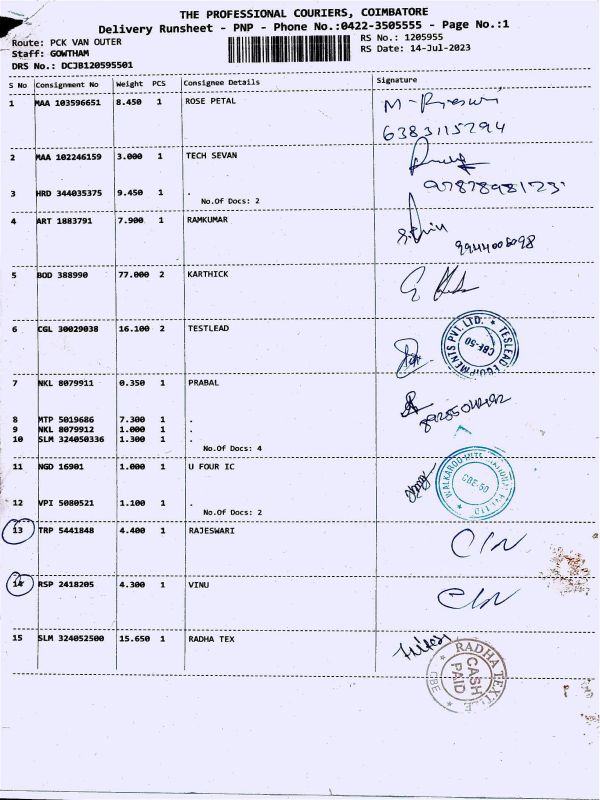 THE PROFESSIONAL COURIERS, COIMBATORE
Delivery Runsheet - PNP - Phone No.:0422-3505555 - Page No.:1
Route: PCK VAN OUTER
RS No.: 1205955
Staff: GOWTHAM
RS Date: 14-Jul-2023
DRS No.: DCJB120595501
S No Consignment No Weight PCS Consignee Details Signature
1 MAA 103596651 8.450 1 ROSE PETAL
6383115294
2 MAA 102246159 3.000 1 TECH SEVAN
3 HRD 344035375 9.450 1 .
No.Of Docs: 2
4 ART 1883791 7.900 1 RAMKUMAR
5 BOD 388990 77.000 2 KARTHICK
6 CGL 30029038 16.100 2 TESTLEAD
TESLEAD EQUIPMENTS PVT. LTD. CBE-50
7 NKL 8079911 0.350 1 PRABAL
8 MTP 5019686 7.300 1 .
9 NKL 8079912 1.000 1 .
10 SLM 324050336 1.300 1 .
No.Of Docs: 4
11 NGD 16901 1.000 1 U FOUR IC
WALKAROO CBE-50
12 VPI 5080521 1.100 1 .
No.Of Docs: 2
13 TRP 5441848 4.400 1 RAJESWARI
14 RSP 2418205 4.300 1 VINU
15 SLM 324052500 15.650 1 RADHA TEX
RADHA TEXTILE CASH PAID CBE